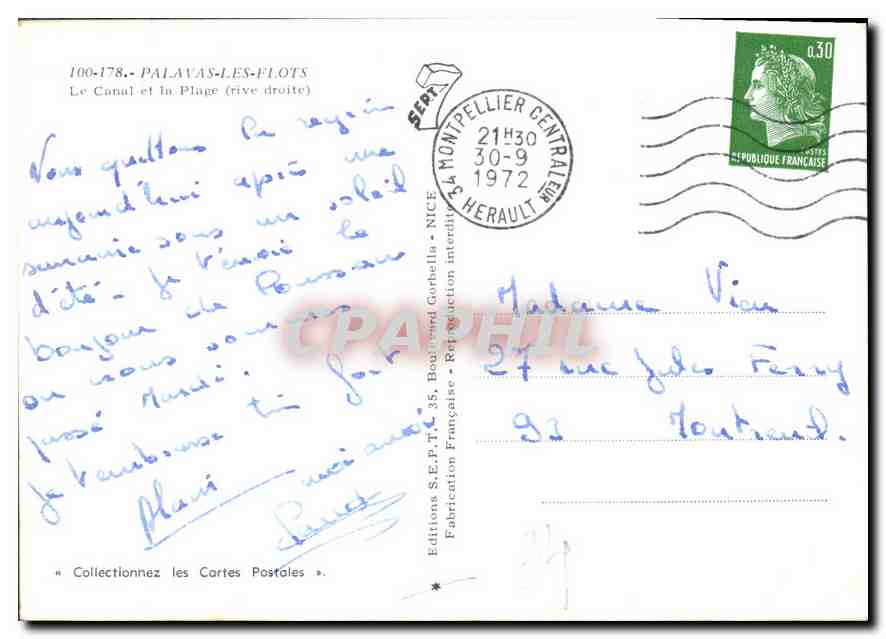 100-178.- PALAVAS-LES-FLOTS
Le Canal et la Plage (rive droite)
Nous quittons la région
aujourd'hui après une
semaine sous un soleil
d'été - Je t'envoie le
bonjour de Poussan
où nous sommes
passé Mardi.
Je t'embrasse bien fort
Alain moi aussi
« Collectionnez les Cartes Postales ».
Editions S.E.P.T. - 35, Boulevard Gorbella - NICE
Fabrication Française - Reproduction interdite
SEPT
34 MONTPELLIER CENTRALEUR
21H30
30-9
1972
HERAULT
0,30
POSTES
REPUBLIQUE FRANÇAISE
Madame Vian
27 rue Jules Ferry
93 Montreuil.
CPAPHIL